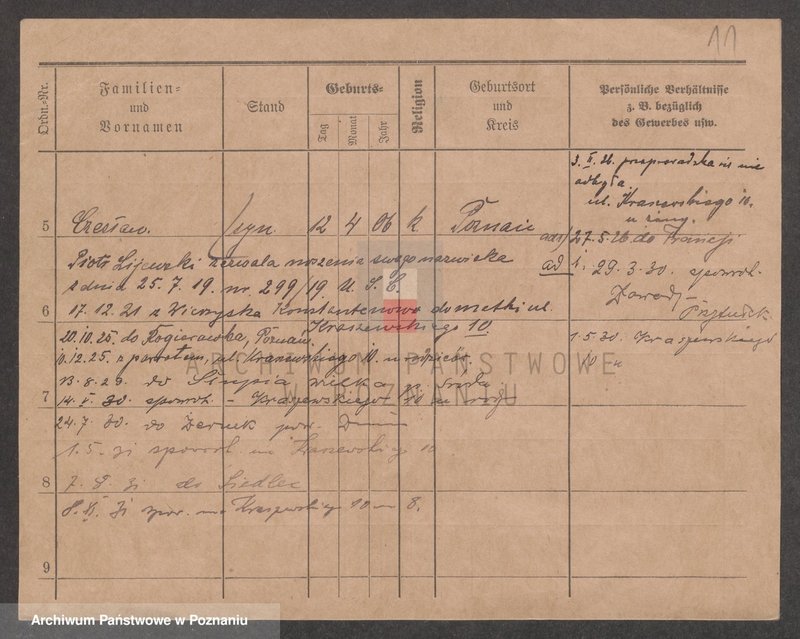 11
Ordn.-Nr.
Familien-
und
Vornamen
Stand
Geburts-
Tag
Monat
Jahr
Religion
Geburtsort
und
Kreis
Persönliche Verhältnisse
z. B. bezüglich
des Gewerbes usw.
3. II. 26. przeprowadzka się nie
odbyła.
ul. Kraszewskiego 10.
u żony.
5 Czesław. syn. 12 4 06 k Poznań
ad 1/ 27.5.26 do Francji
Piotr Lijewski zezwala noszenia swego nazwiska
z dnia 25. 7. 19. nr. 299/19 U. S. C.
ad 1. 29. 3. 30. spowrot.
6 17. 12. 21 z Wierzyska Konstantenowo do matki ul.
Kraszewskiego 10.
20. 10. 25. do Rogierówka, Poznań.
10. 12. 25. z powrotem, ul. Kraszewskiego 10.
1. 5. 30. Kraszewskiego
10
13. 8. 29. do wielka p. Środa
7 14. V. 30. spowrot. - Kraszewskiego 10
24. 7. 30. do pow.
1. 5. 31 spowrot na Kraszewskieg 10
8 7. 8. 31 do Siedlec
8. XI. 31 spow. na Kraszewskieg 10 m 8.
9
ARCHIWUM PAŃSTWOWE
W POZNANIU
Archiwum Państwowe w Poznaniu